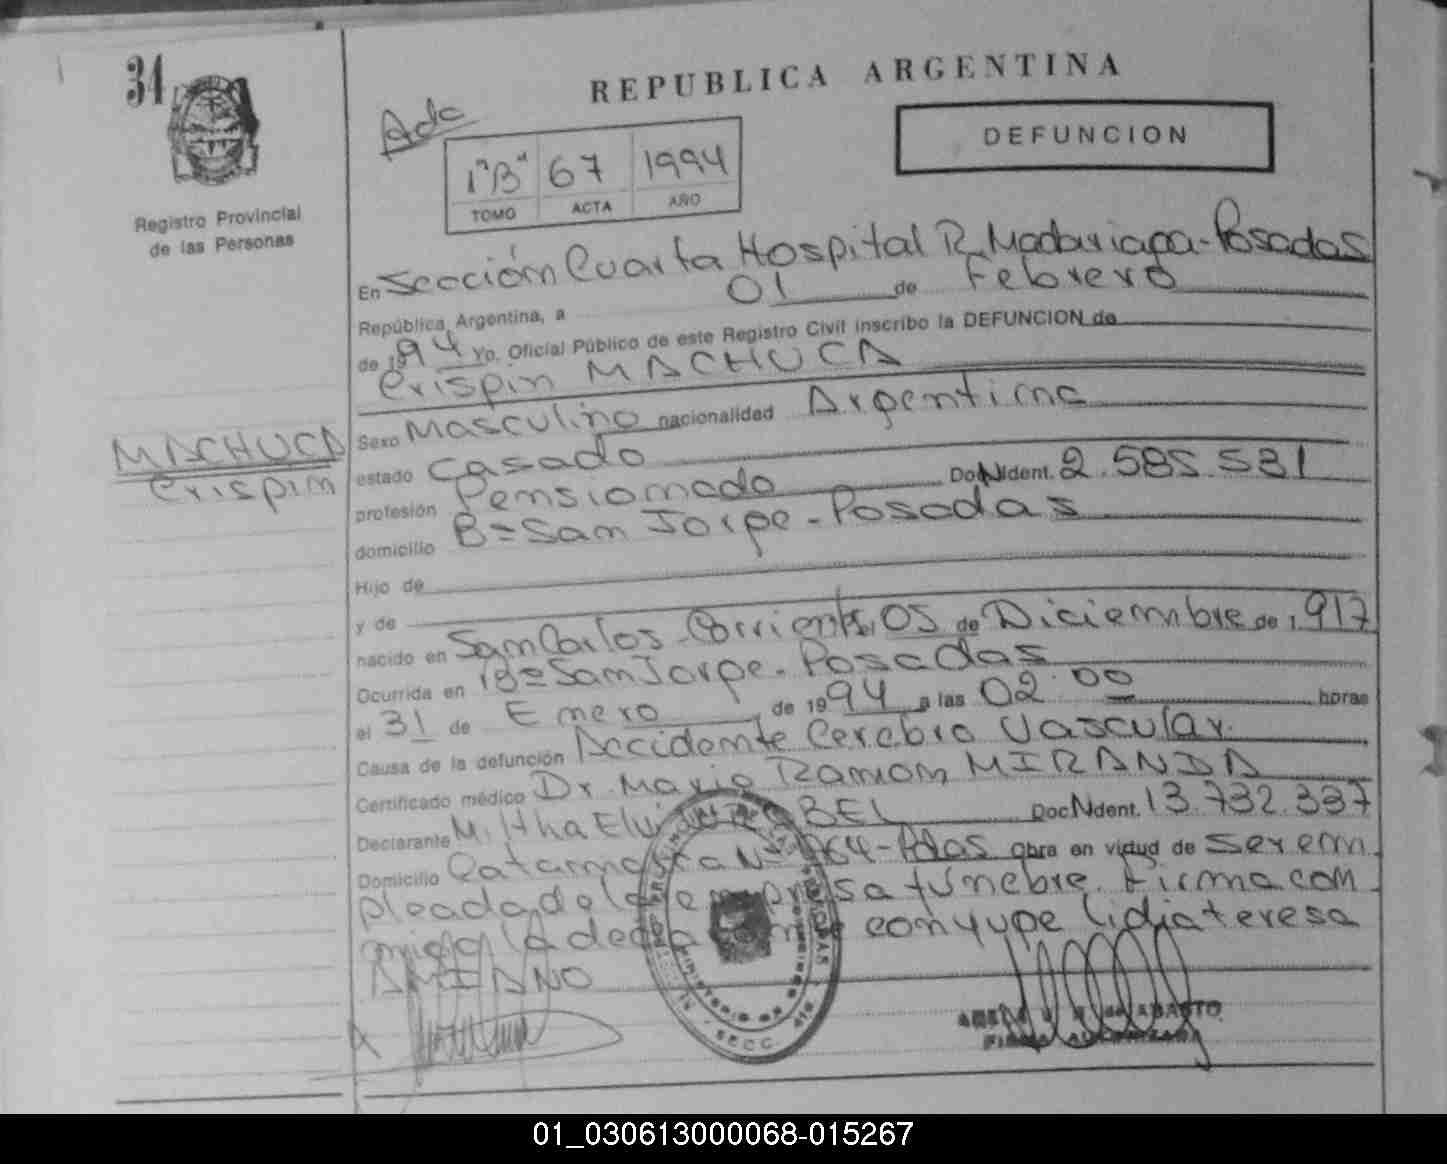 34
REPUBLICA ARGENTINA
Ado
DEFUNCION
1"B" 67 1994
TOMO ACTA AÑO
Registro Provincial
de las Personas
En Sección Cuarta Hospital R. Madariaga - Posadas
República Argentina, a 01 de Febrero
de 1994 Yo, Oficial Público de este Registro Civil inscribo la DEFUNCION de
Crispin MACHUCA
MACHUCA
Crispin
Sexo Masculino nacionalidad Argentina
estado Casado
profesión Pensionado Doc Ident. 2.585.531
domicilio B= San Jorge - Posadas
Hijo de
y de
nacido en San Carlos - Corrientes, 05 de Diciembre de 1.917
Ocurrida en B= San Jorge - Posadas
el 31 de Enero de 1994 a las 02:00 horas
Causa de la defunción Accidente Cerebro Vascular.
Certificado médico Dr. Mario Ramon MIRANDA
Declarante BEL Doc N Ident. 13.732.337
Domicilio Catamarca Nº 64 - Pdas Obra en virtud de ser em
pleada de la empresa fúnebre. Firma con
migo la de conyuge lidia teresa
AMIANO
SECC.
01_030613000068-015267